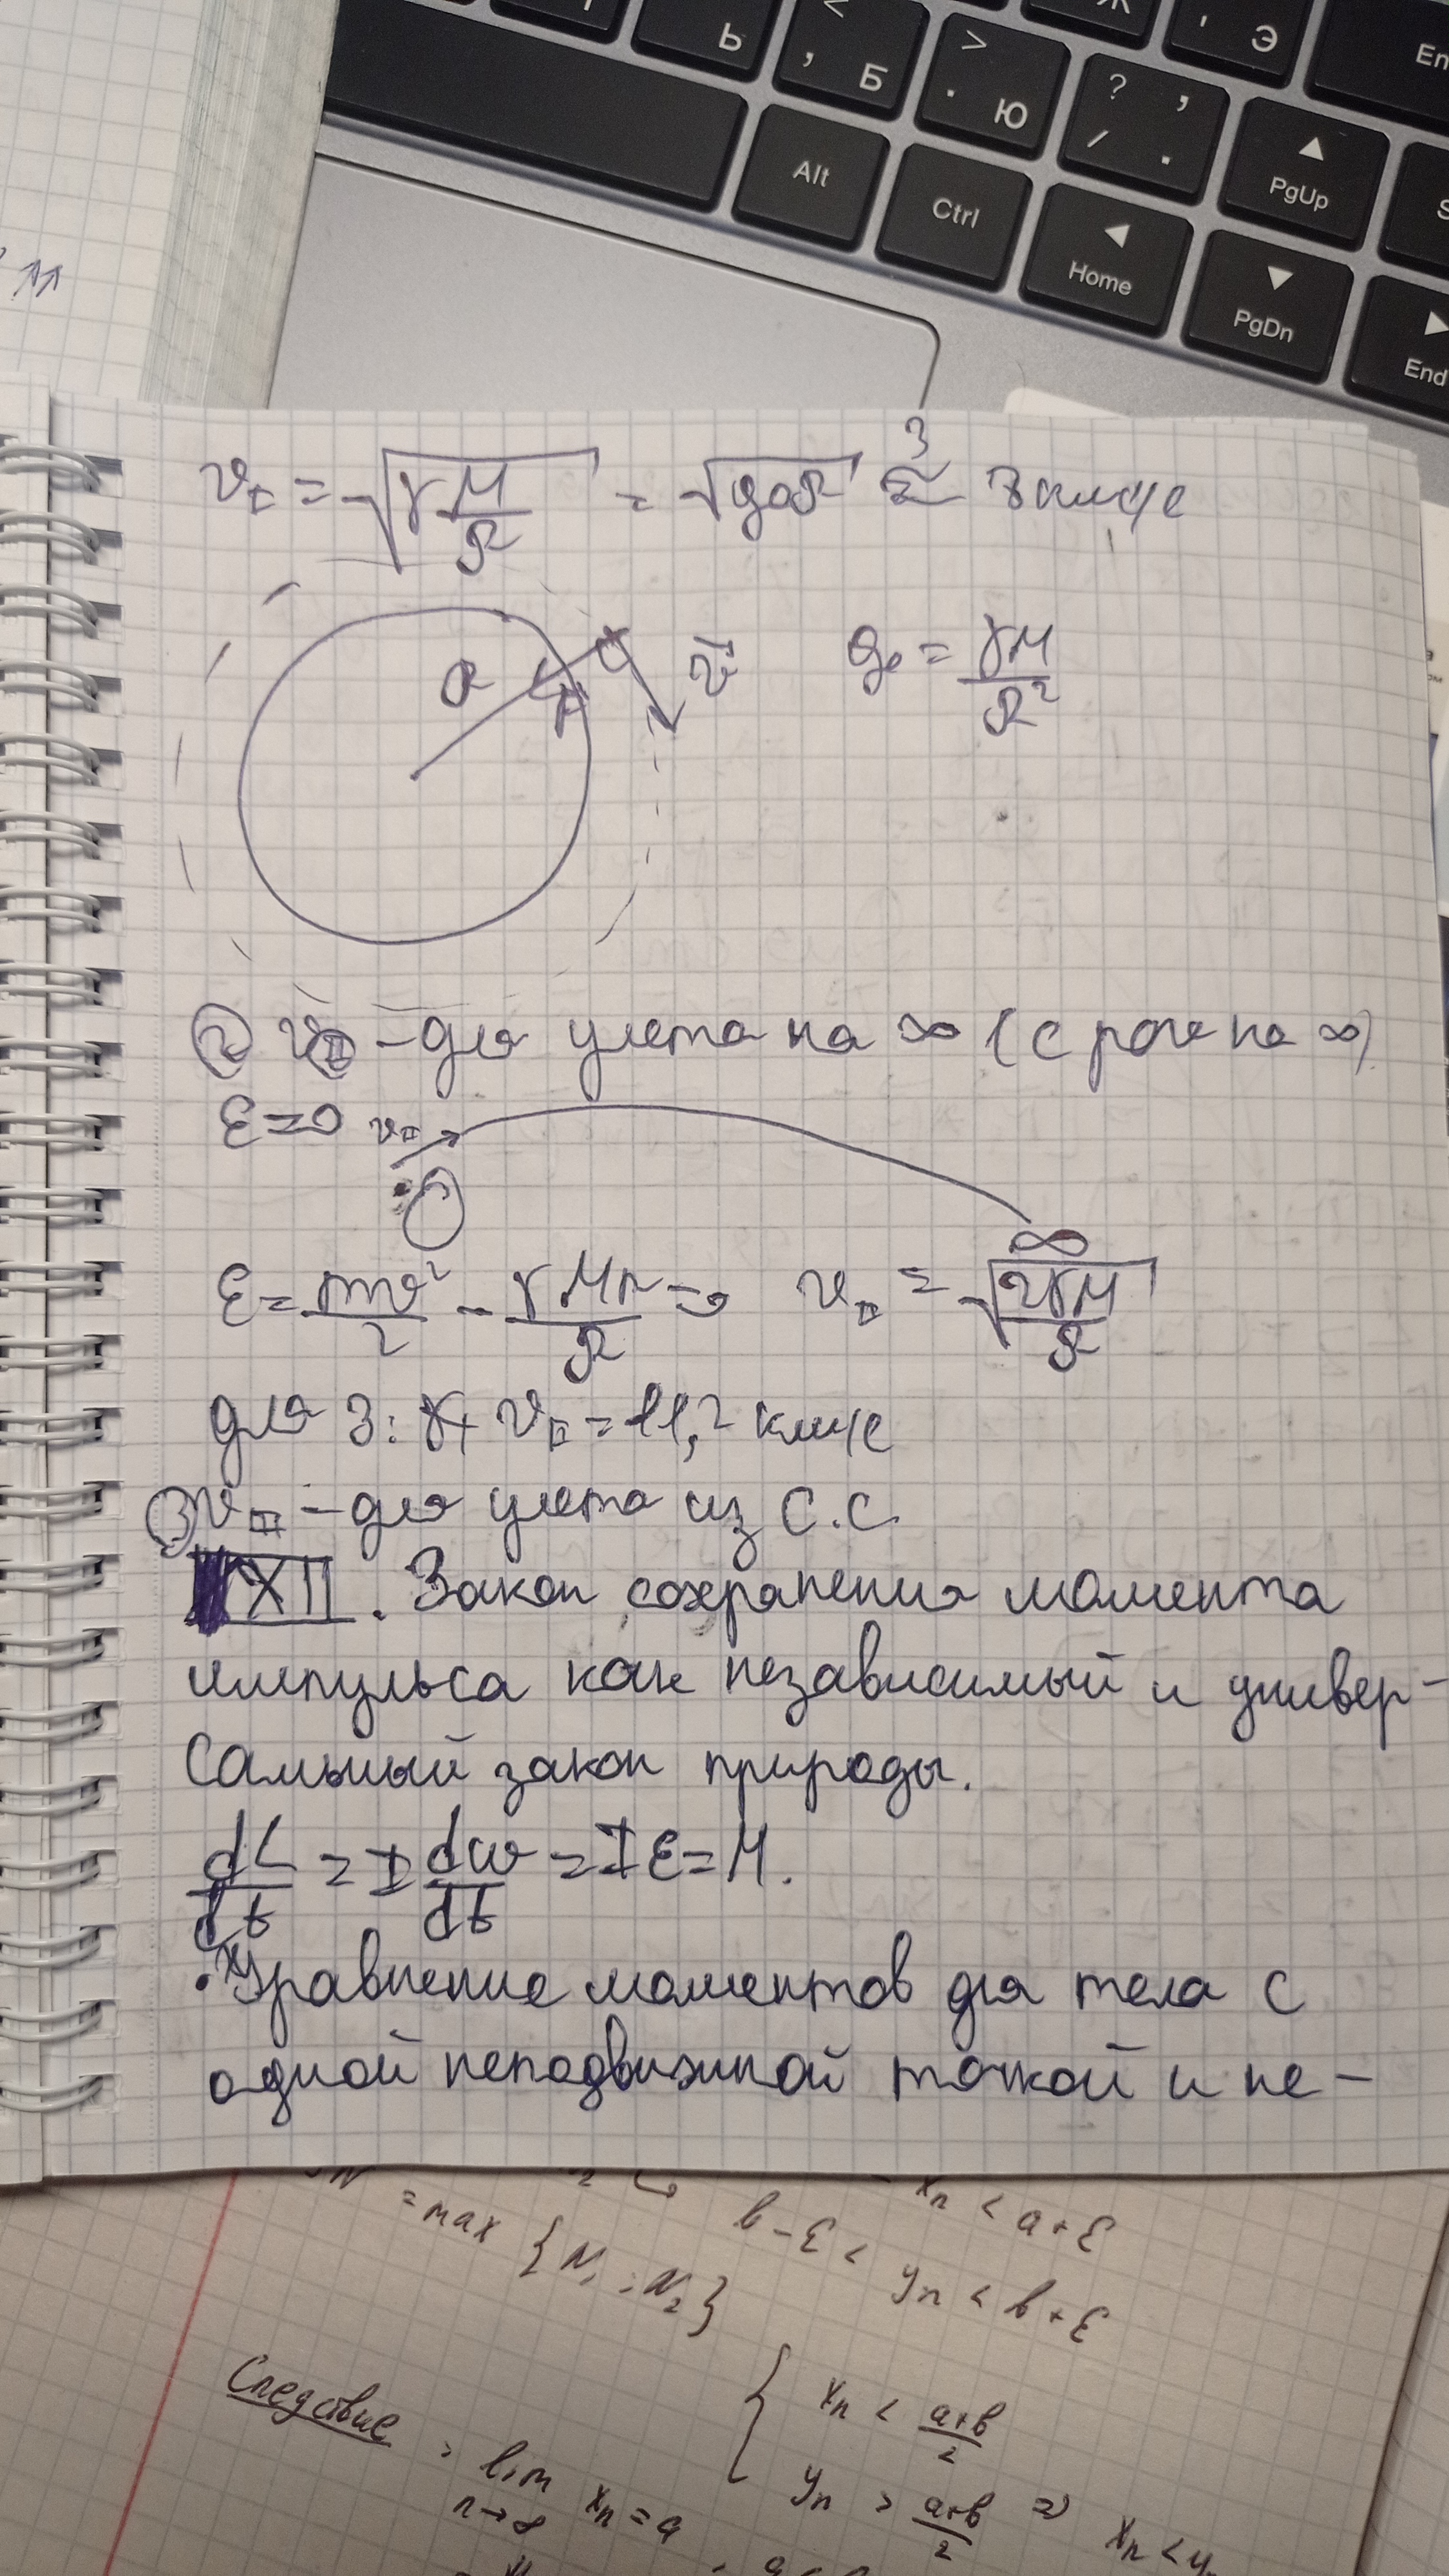 Ь
< , Б
> . Ю
Ж
' Э
En
? , / .
Alt
Ctrl
Home
PgUp
PgDn
End
v_I = √(γ M/R) = √(g₀R) ≅ 8 км/с
З
R
v_I
g₀ = γM/R²
② v_II – для улета на ∞ (с
на ∞)
ε=0 v_II
∞
ε = mv²/2 – γMm/R ⇒ v_II = √(2γM/R)
для З: v_II = 11,2 км/с
③ v_III – для улета из С.С.
XII. Закон сохранения момента
импульса как независимый и универ-
сальный закон природы.
dL/dt = I dω/dt = Iε = M.
• Уравнение моментов для тела с
одной неподвижной точкой и не-
xₙ < a+ε
N = max {N₁ ; N₂}
b-ε < yₙ < b+ε
Следствие
lim xₙ = a
n→∞
{ xₙ < (a+b)/2
yₙ > (a+b)/2 ⇒ xₙ < y